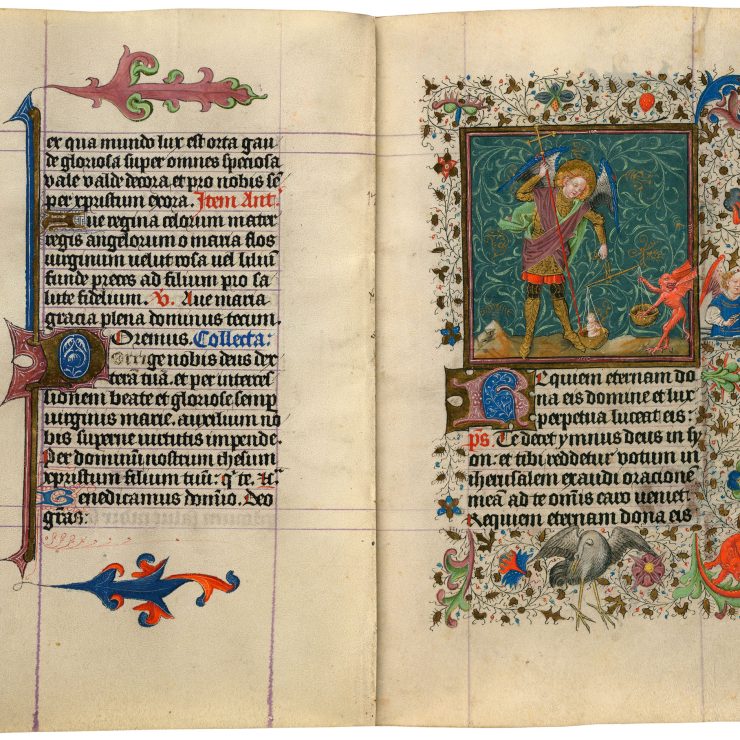 ex qua mundo lux est orta gau
de gloriosa super omnes speciosa
vale valde decora. et pro nobis sē
per xpristum exora. Item Ant.
Aue regina celorum mater
regis angelorum o maria flos
virginum velut rosa vel liliū
funde preces ad filium pro sa
lute fidelium. V. Aue maria
gracia plena dominus tecum.
Oremus. Collecta.
Porrige nobis deus dex
terā tuā. et per interces
sionem beate et gloriose semp
virginis marie. auxilium no
bis superne virtutis impende.
Per dominū nostrum ihesum
xpristum filium tuū: q̄ te. tc̄.
Benedicamus domīo. Deo
grās:
Requiem eternam do
na eis domine et lux
perpetua luceat eis:
ps̄. Te decet ymnus deus in sy
on: et tibi reddetur votum in
iherusalem exaudi oracionē
meā ad te om̄is caro veniet.
Requiem eternam dona eis